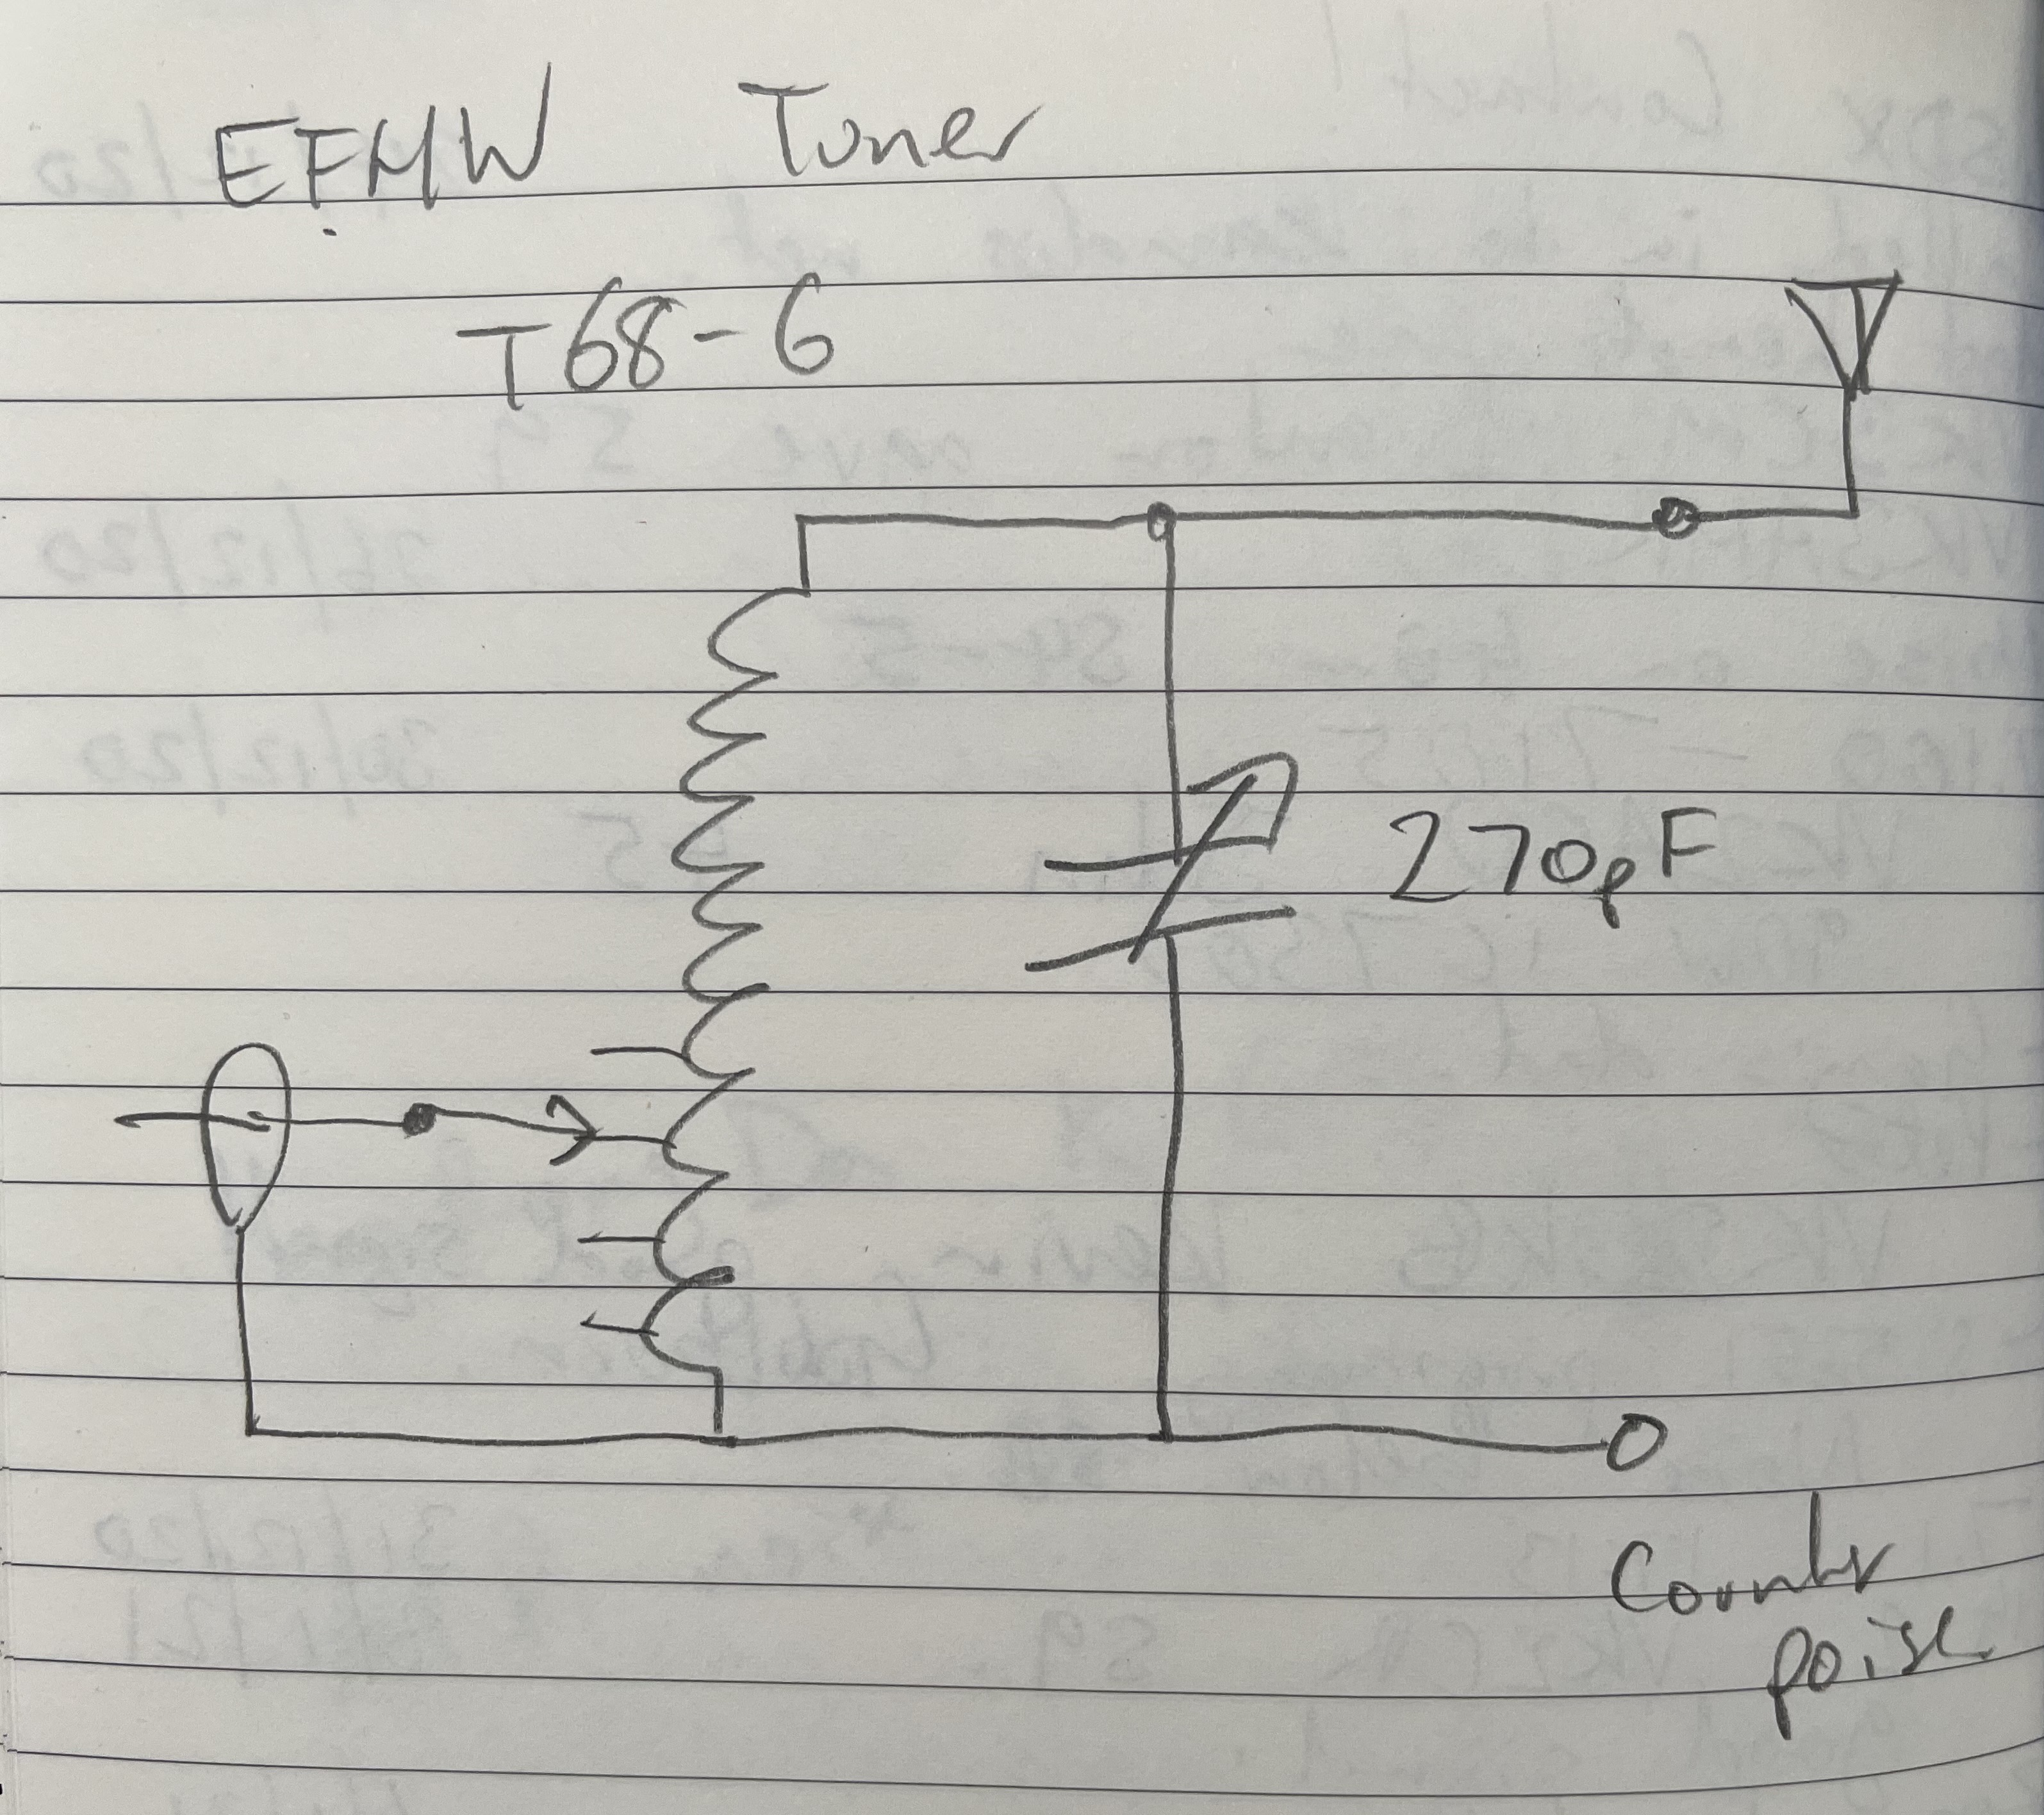 EFHW Tuner
T68-6
270pF
Counter
poise